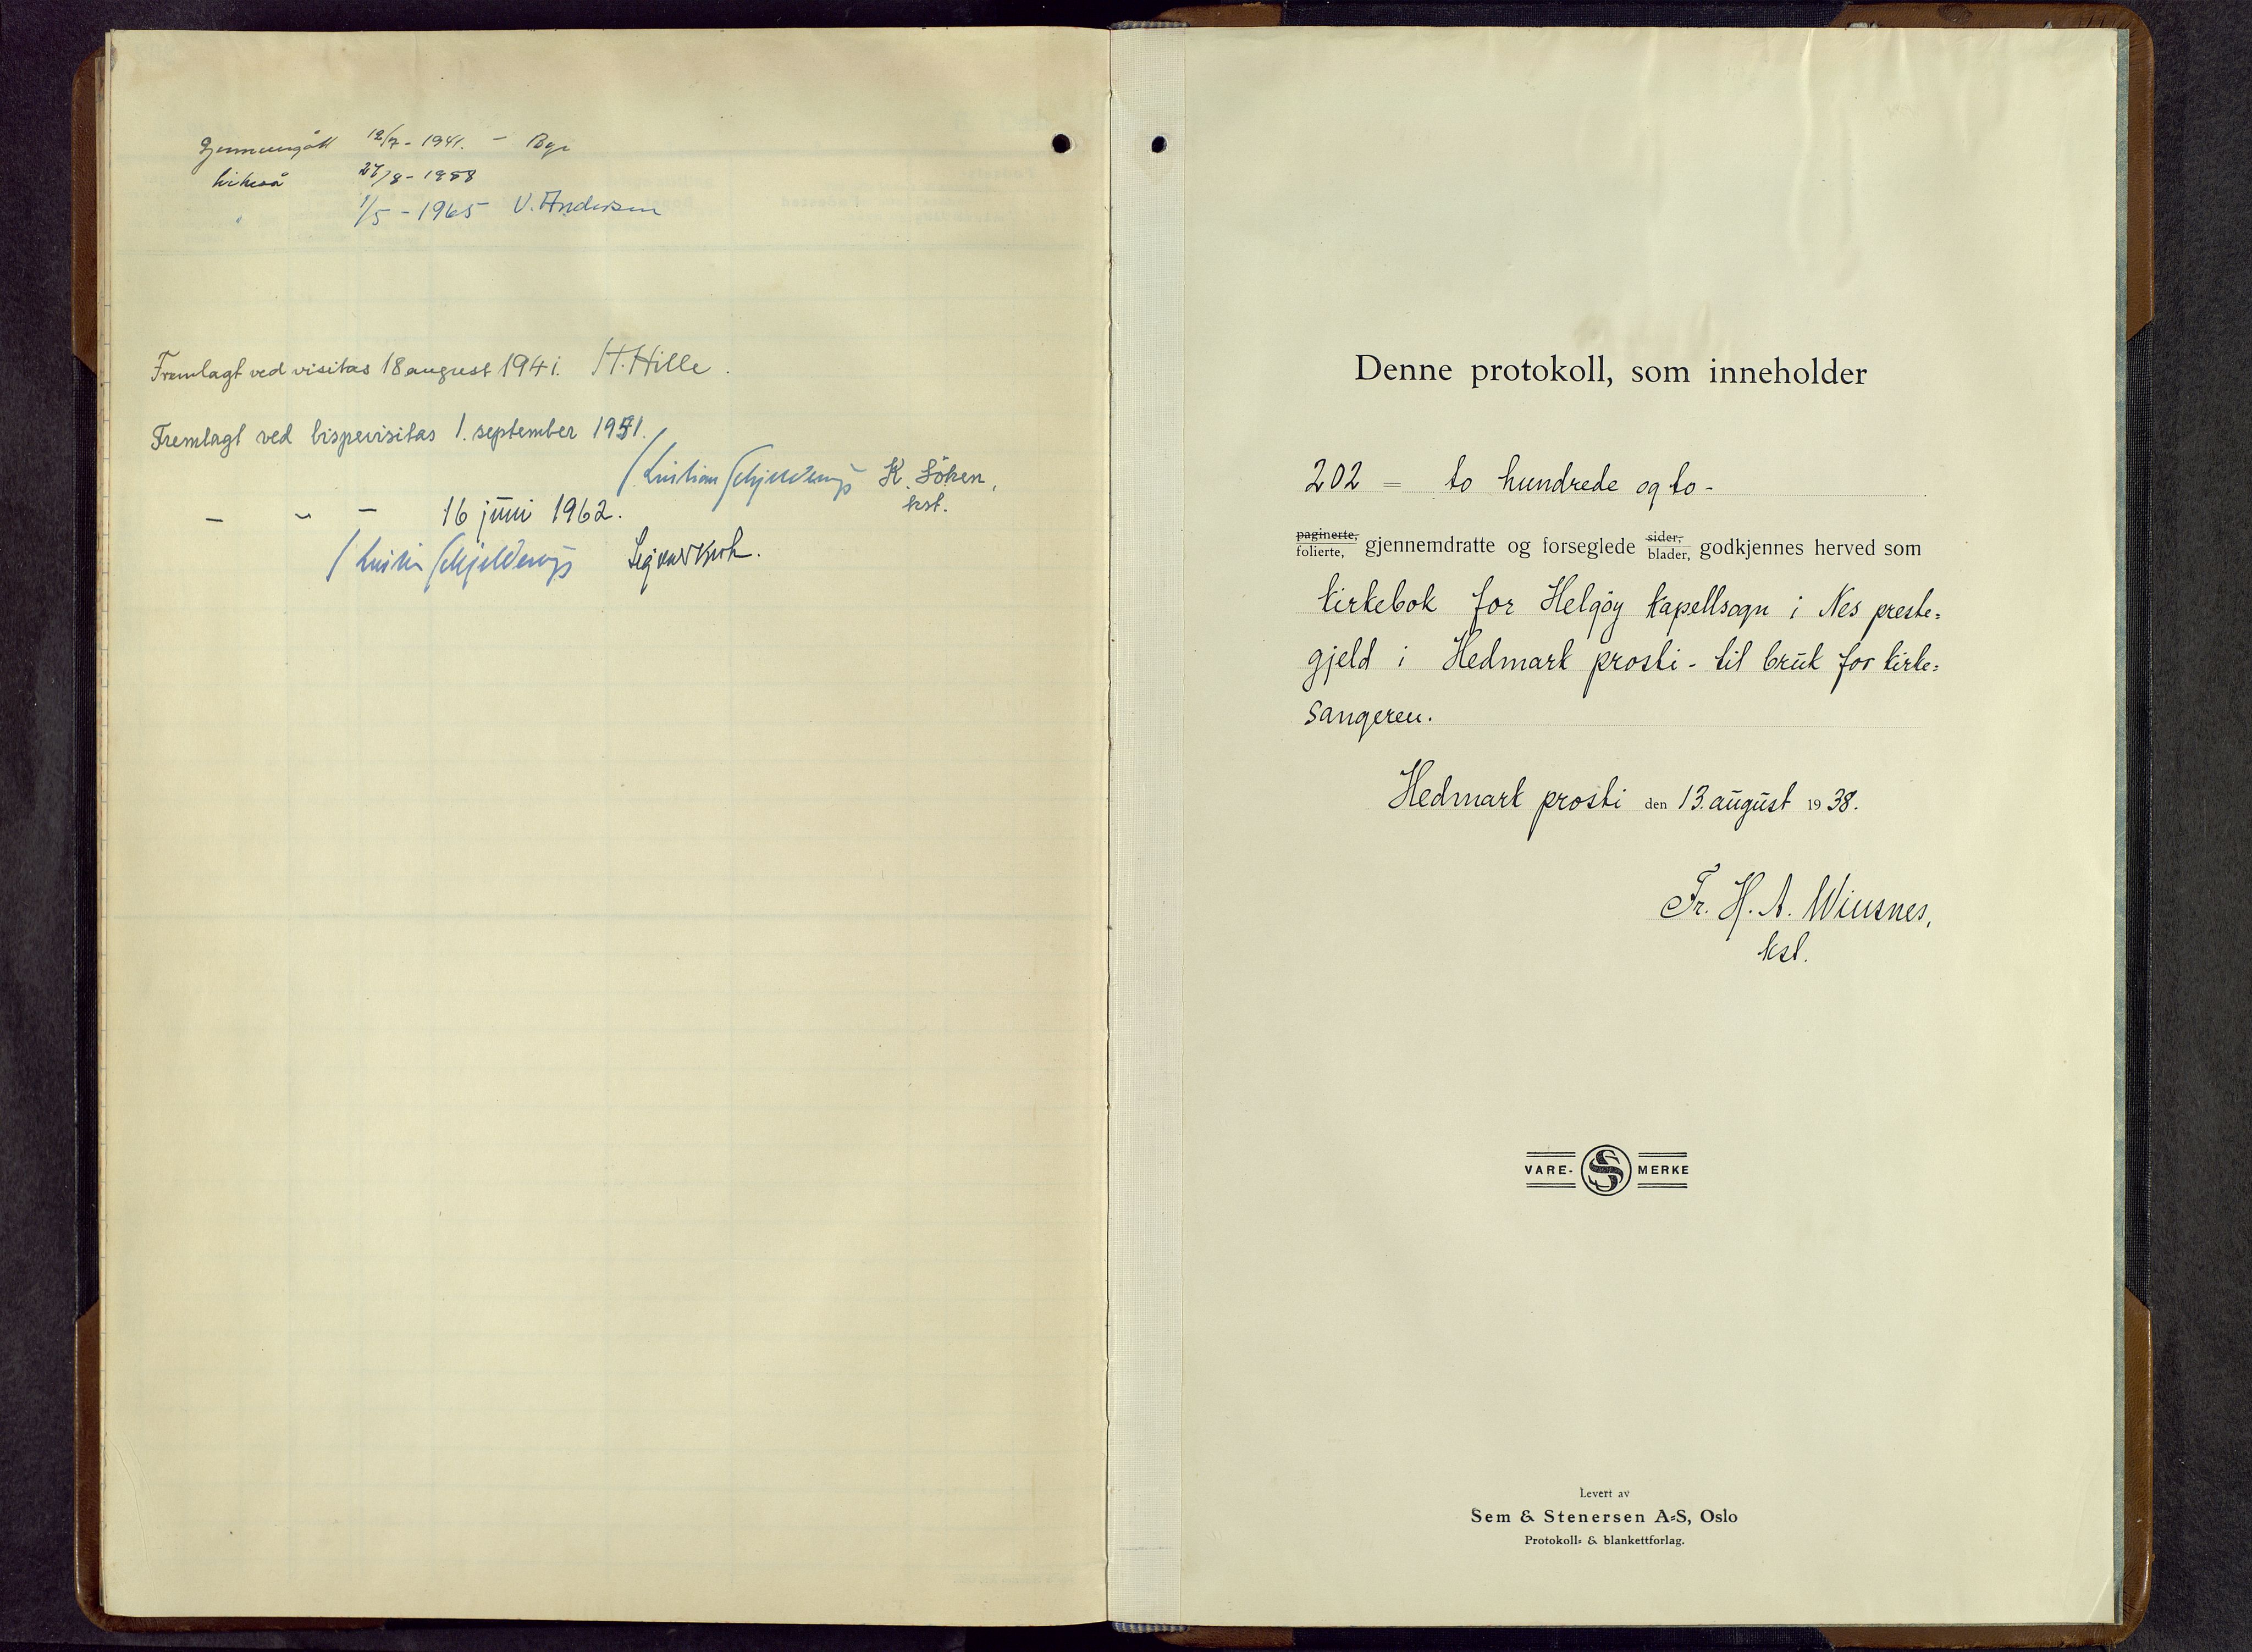 Gjennemgått 12/7 - 1941. -
likeså 27/8 - 1958
" 1/5 - 1965 V. Andersen
Fremlagt ved visitas 18 august 1941. H. Hille.
Fremlagt ved bispevisitas 1. september 1951.
Kristian Schjelderup K. Söken,
kst.
- " - 16 juni 1962.
Kristian Schjelderup
Denne protokoll, som inneholder
202 = to hundrede og to -
paginerte, folierte, gjennemdratte og forseglede sider, blader, godkjennes herved som
kirkebok for Helgöy kapellsogn i Nes preste=
gjeld i Hedmark prosti - til bruk for kirke=
sangeren.
Hedmark prosti den 13. august 1938.
Fr. H. A. Wiesnes,
kst.
VARE- S MERKE
Levert av
Sem & Stenersen A=S, Oslo
Protokoll= & blankettforlag.